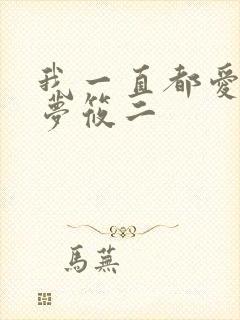 我一直都愛
夢筱二
馬蕪